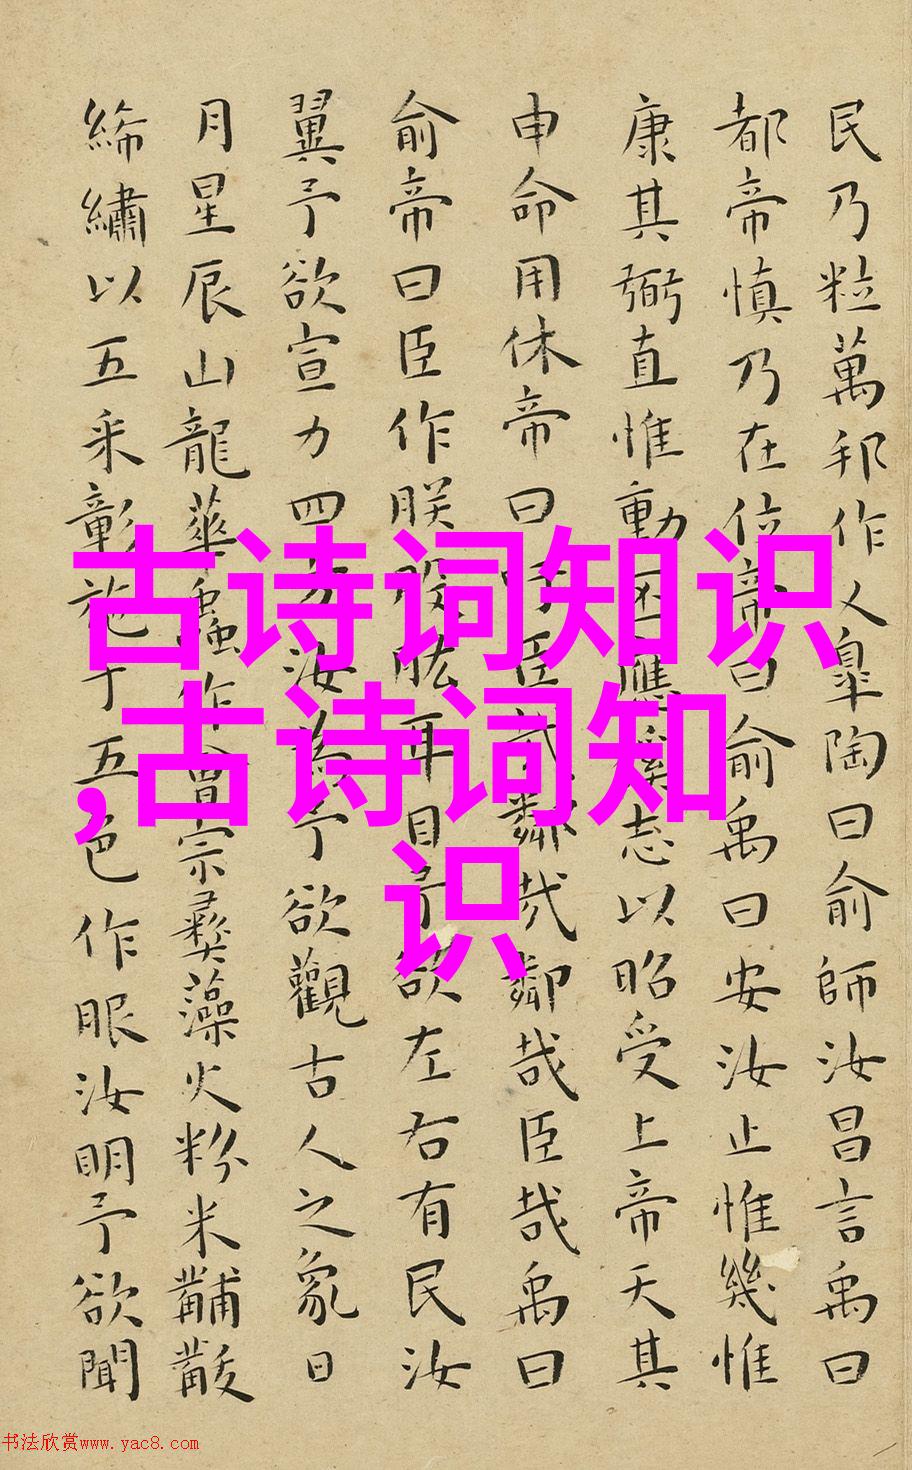 民乃粒萬邦作乂皋陶曰俞師汝昌言禹曰
都帝慎乃在位帝曰俞禹曰安汝止惟幾惟
康其弼直惟動丕應徯志以昭受上帝天其
申命用休帝曰吁臣哉鄰哉鄰哉臣哉禹曰
俞帝曰臣作朕股肱耳目予欲左右有民汝
翼予欲宣力四方汝為予欲觀古人之象日
月星辰山龍華蟲作會宗彝藻火粉米黼黻
絺繡以五采彰施于五色作服汝明予欲聞
古诗词知识
,古诗词知
识
书法欣赏www.yac8.com